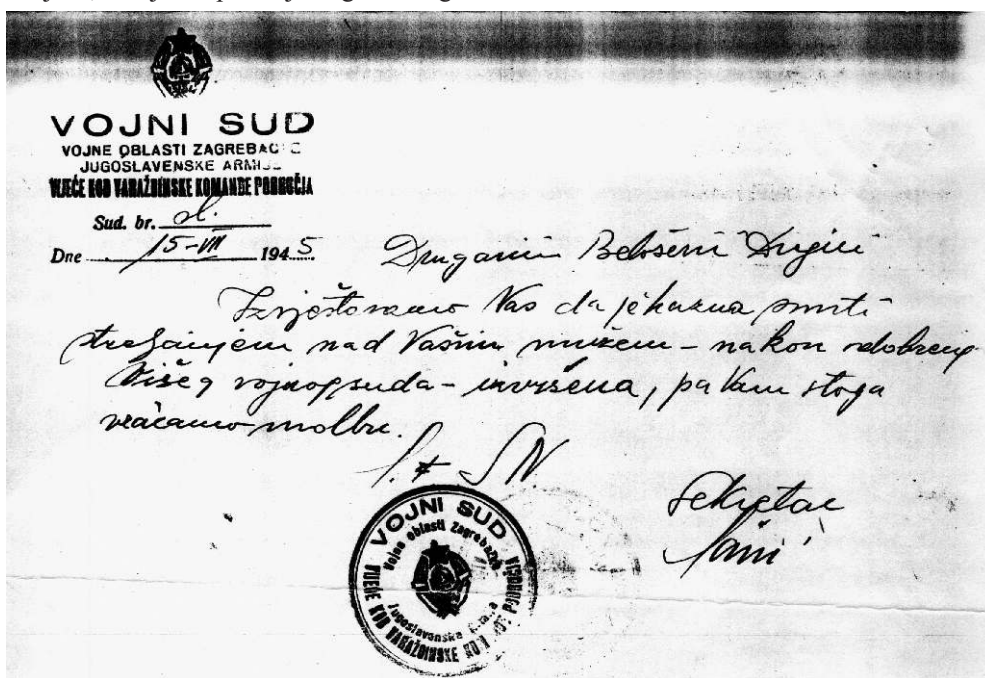 VOJNI SUD
VOJNE OBLASTI ZAGREBAČ
JUGOSLAVENSKE ARMIJE
VIJEĆE KOD VARAŽDINSKE KOMANDE PODRUČJA
Sud. br. sl.
Dne 15-VII 1945
Drugarici Belošević Dragici
Izvještavamo Vas da je kazna smrti
streljanjem nad Vašim mužem - nakon odobrenja
Višeg vojnog suda - izvršena, pa Vam stoga
vraćamo molbu.
S.F. S.N.
Sekretar
VOJNI SUD
Vojne oblasti Zagrebačke
Jugoslavenska
VIJEĆE KOD VARAŽDINSKE PODRUČJA